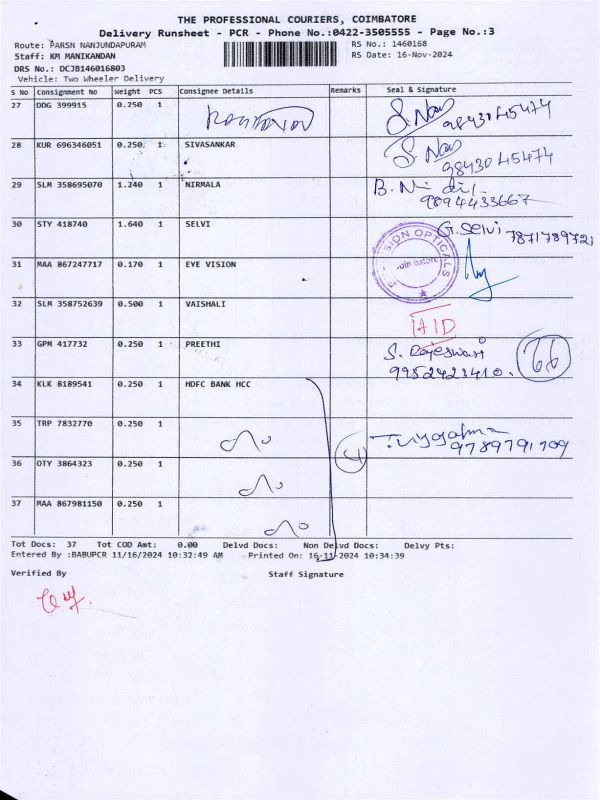 THE PROFESSIONAL COURIERS, COIMBATORE
Delivery Runsheet - PCR - Phone No.:0422-3505555 - Page No.:3
Route: PARSN NANJUNDAPURAM RS No.: 1460168
Staff: KM MANIKANDAN RS Date: 16-Nov-2024
DRS No.: DCJB146016803
Vehicle: Two Wheeler Delivery
S No Consignment No Weight PCS Consignee Details Remarks Seal & Signature
27 DDG 399915 0.250 1 S. Nav 9843045474
28 KUR 696346051 0.250 1 SIVASANKAR S. Nav 9843045474
29 SLM 358695070 1.240 1 NIRMALA 9894433667
30 STY 418740 1.640 1 SELVI G. Selvi 787178972
31 MAA 867247717 0.170 1 EYE VISION VISION OPTICALS Coimbatore
32 SLM 358752639 0.500 1 VAISHALI AID
33 GPM 417732 0.250 1 PREETHI S. Rajeswari 9952423410.
34 KLK 8189541 0.250 1 HDFC BANK HCC
35 TRP 7832770 0.250 1 4 9789791709
36 OTY 3864323 0.250 1
37 MAA 867981150 0.250 1
Tot Docs: 37 Tot COD Amt: 0.00 Delvd Docs: Non Delvd Docs: Delvy Pts:
Entered By :BABUPCR 11/16/2024 10:32:49 AM Printed On: 16-11-2024 10:34:39
Verified By Staff Signature